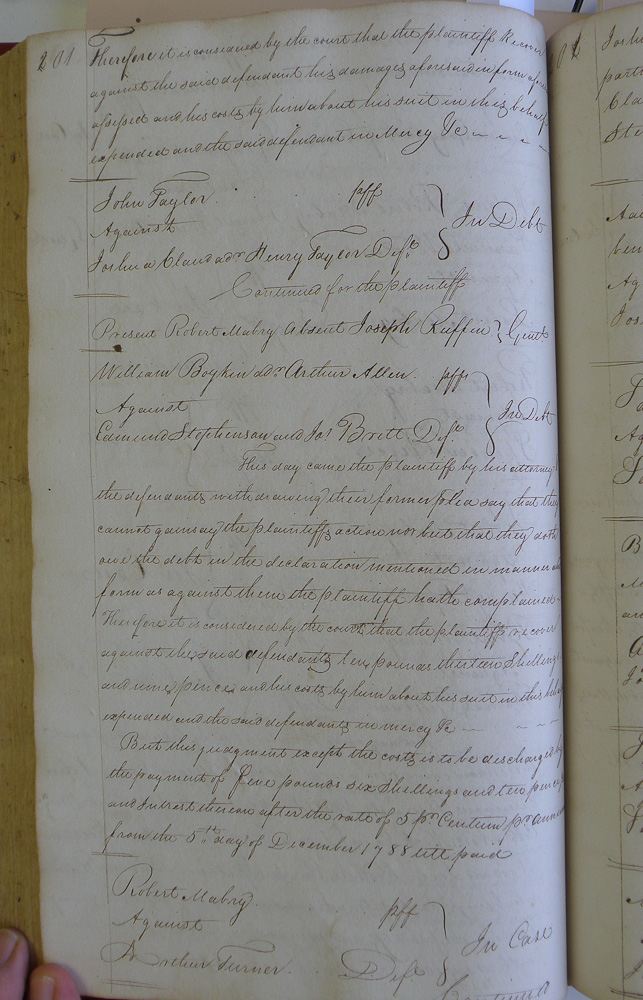 201
Therefore it is considered by the court that the plaintiff Recover
against the said defendant his damages aforesaid in form afore
assessed and his costs by him about his suit in this behalf
expended and the said defendant in Mercy &c
John Taylor pff
Against } In Debt
Joshua Claud adr Henry Taylor Deft
Continued for the plaintiff
Present Robert Mabry Absent Joseph Ruffin } Gent
William Boykin adr Arthur Allen pff
Against } In Debt
Edmund Stephenson and Jos Britt Deft
This day came the plaintiff by his attorney
the defendants withdrawing their former plea say that they
cannot gainsay the plaintiffs action nor but that they doth
owe the debt in the declaration mentioned in manner and
form as against them the plaintiff hath complained
Therefore it is considered by the court that the plaintiffs recover
against the said defendants ten pounds thirteen Shillings
and nine pence and his costs by him about his suit in this behalf
expended and the said defendants in mercy &c
But this judgment except the costs is to be discharged by
the payment of five pounds six Shellings and ten pence
and Interest thereon after the rate of 5 pr Centum pr annum
from the 5th day of December 1788 till paid
Robert Mabry pff
Against } In Case
Arthur Turner Deft